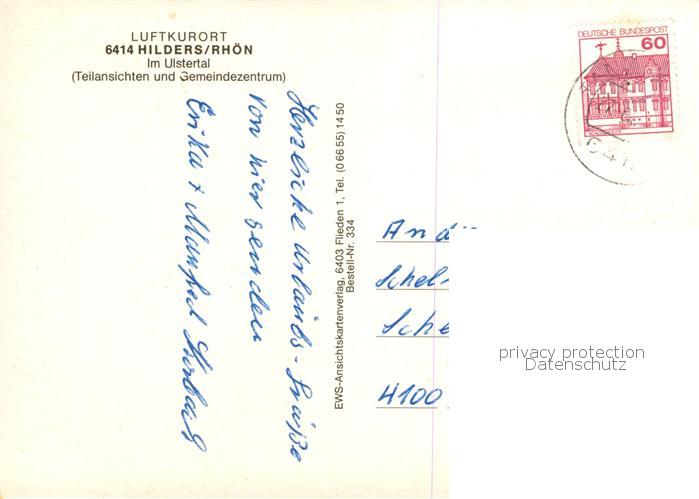 LUFTKURORT
6414 HILDERS/RHÖN
Im Ulstertal
(Teilansichten und Gemeindezentrum)
Herzliche Urlaubs-Grüße
von hier senden
Erika + Manfred
EWS-Ansichtskartenverlag, 6403 Flieden 1, Tel. (0 66 55) 14 50
Bestell-Nr. 334
DEUTSCHE BUNDESPOST
60
An d
Schel
Sche
4100
privacy protection
Datenschutz